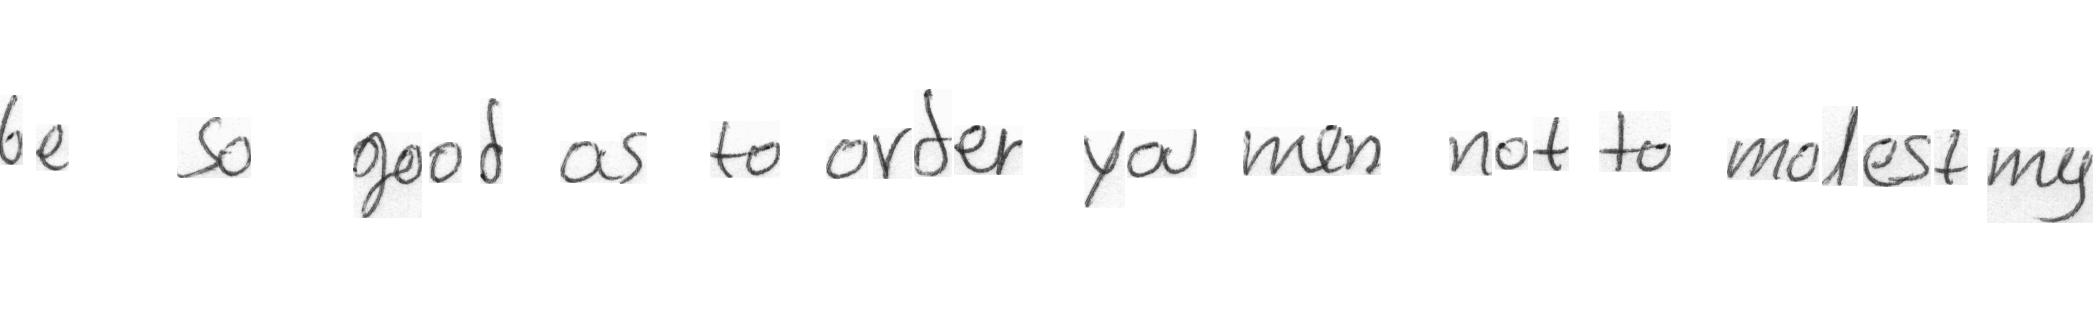 be so good as to order you men not to molest my